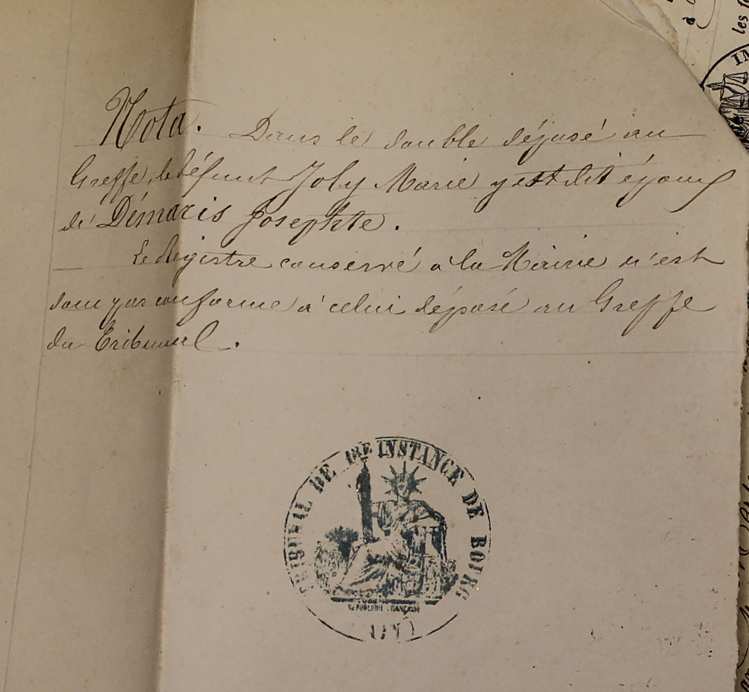 Nota. Dans le double déposé au
Greffe, le défunt Joly Marie y est dit époux
de Démaris Josephte.
Le Registre conservé à la Mairie n'est
donc pas conforme à celui déposé au Greffe
du Tribunal.
TRIBUNAL DE 1RE INSTANCE DE BOURG
RÉPUBLIQUE FRANÇAISE
(AIN)